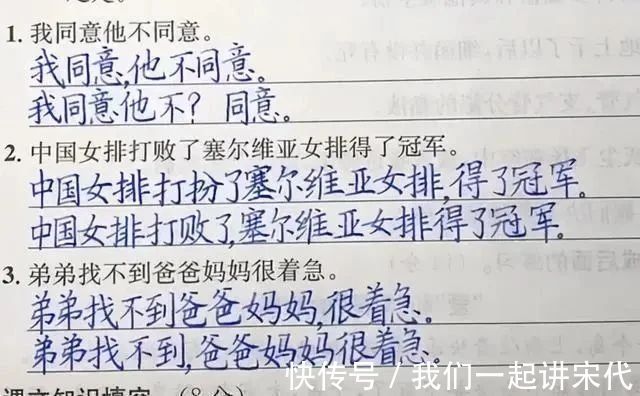 1. 我同意他不同意。
我同意,他不同意。
我同意他不? 同意。
2. 中国女排打败了塞尔维亚女排得了冠军。
中国女排打扮了塞尔维亚女排,得了冠军。
中国女排打败了,塞尔维亚女排得了冠军。
3. 弟弟找不到爸爸妈妈很着急。
弟弟找不到爸爸妈妈,很着急。
弟弟找不到,爸爸妈妈很着急。
课文知识填空 (8分)
快传号 / 我们一起讲宋代